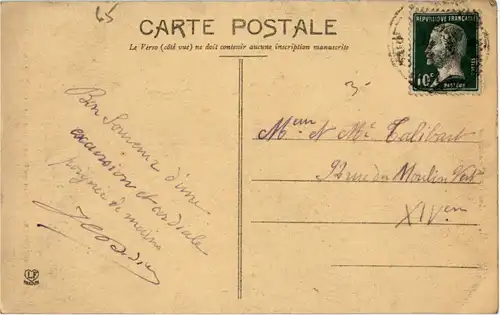 65
CARTE POSTALE
Le Verso (côté vue) ne doit contenir aucune inscription manuscrite
REPUBLIQUE FRANÇAISE
10c
PASTEUR
3
Bon Souvenir d'une
excursion et cordiale
poignée de mains
Meur et Me Talibart
92 rue du Moulin Vert
XIVem
LF